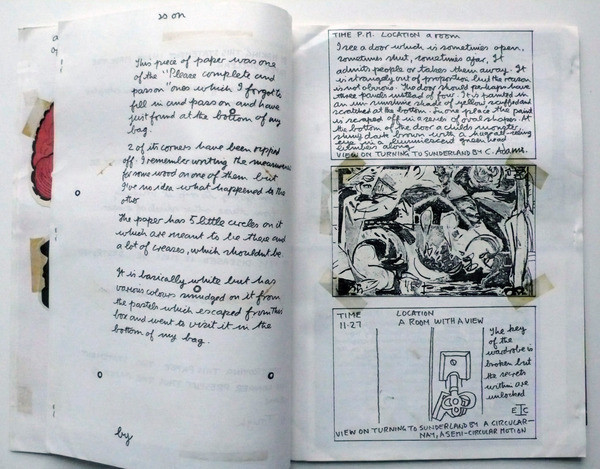 ss on
This piece of paper was one
of the "Please complete and
pass on" ones which I forgot to
fill in and pass on and have
just found at the bottom of my
bag.
2 of its corners have been ripped
off. I remember writing the measurements
for some wood on one of them but
I've no idea what happened to the
other
The paper has 5 little circles on it
which are meant to be there and
a lot of creases, which shouldn't be.
It is basically white but has
various colours smudged on it from
the pastels which escaped from their
box and went to visit it in the
bottom of my bag.
by
TIME P.M. LOCATION a room
I see a door which is sometimes open,
sometimes shut, sometimes ajar, It
admits people or takes them away. It
is strangely out of proportion but the reason
is not obvious. The door should perhaps have
three panels instead of four. It is painted in
an un sunshine shade of yellow scuffed and
scratched at the bottom. In one place the paint
is scraped off in a series of oval shapes. At
the bottom of the door a childs monster,
shiny dark brown with a
eye in a luminescent green head
along
VIEW ON TURNING TO SUNDERLAND BY C. Adams.
TIME
11-27
LOCATION
A ROOM WITH A VIEW
The key
of the
wardrobe is
broken but
the secrets
within are
unlocked
VIEW ON TURNING TO SUNDERLAND BY A CIRCULAR-
NAM, A SEMI-CIRCULAR MOTION